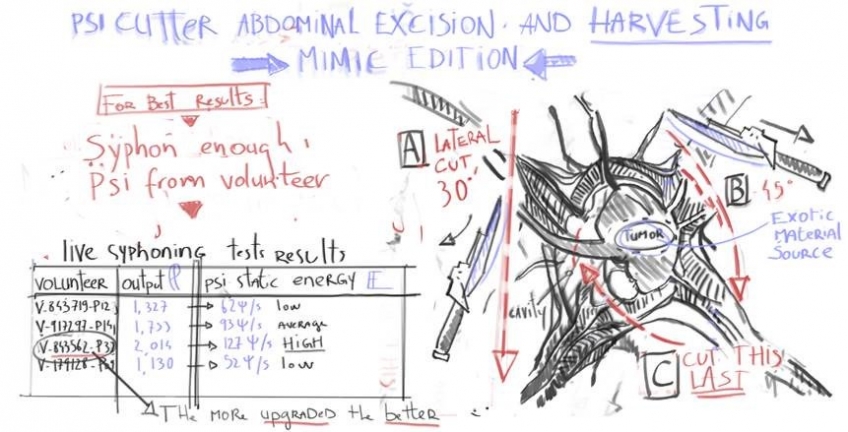 PSI CUTTER ABDOMINAL EXCISION. AND HARVESTING
MIMIC EDITION
FOR BEST RESULTS:
Syphon enough
Psi from volunteer
live syphoning tests results
VOLUNTEER output psi static energy
1,327 62Ψ/s low
1,733 93Ψ/s AVERAGE
V-843562-P33 2,014 127Ψ/s HIGH
1,130 52Ψ/s low
THE MORE upgraded the better
A LATERAL
CUT
30°
B 45°
TUMOR
EXOTIC
MATERIAL
SOURCE
CAVITY
C CUT THIS
LAST